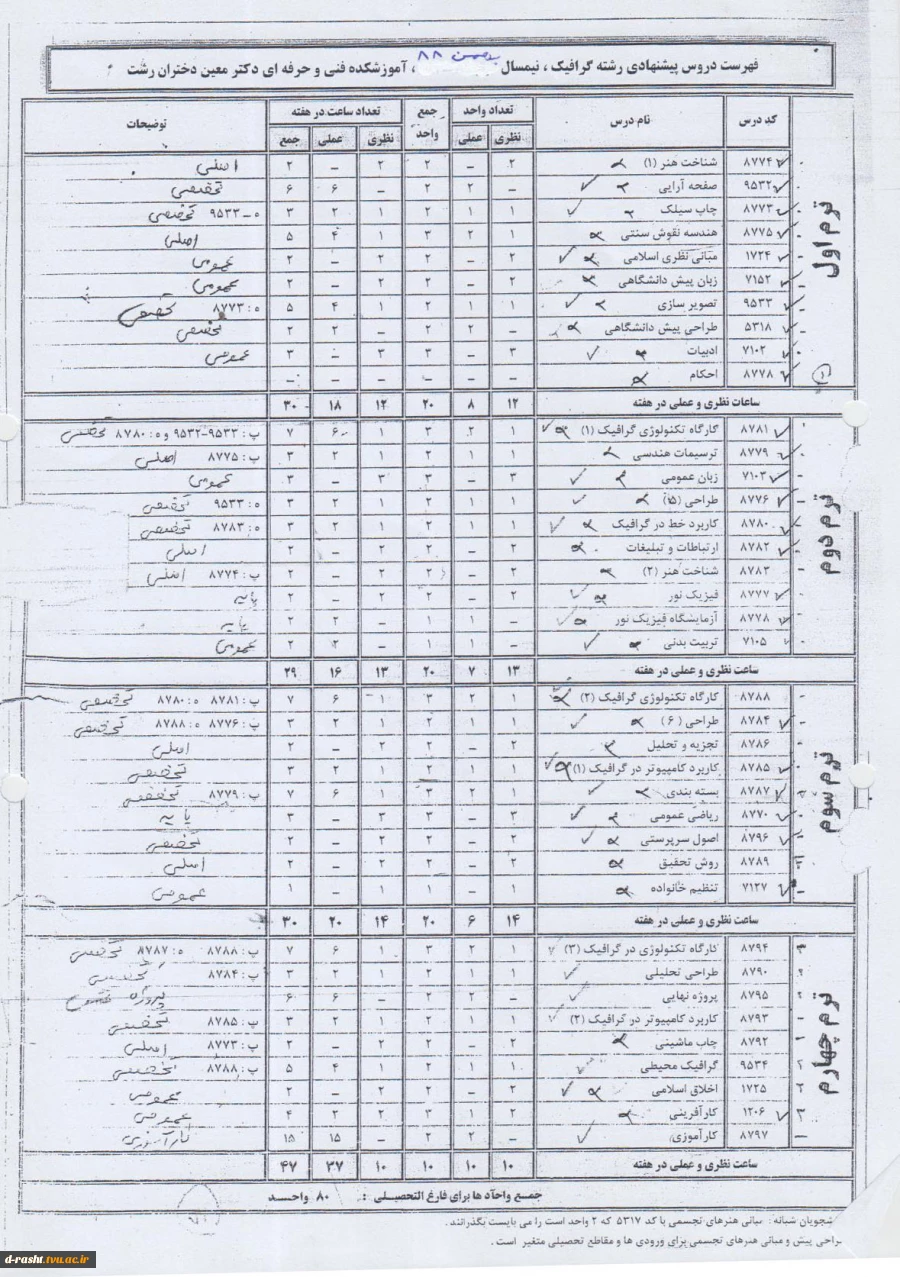 فهرست دروس پیشنهادی رشته گرافیک ، نیمسال بهمن ۸۸ ، آموزشکده فنی و حرفه ای دکتر معین دختران رشت
کد درس نام درس تعداد واحد جمع واحد تعداد ساعت در هفته توضیحات
نظری عملی نظری عملی جمع
ترم اول
۸۷۷۴ شناخت هنر (۱) ۲ – ۲ ۲ – ۲ اصلی
۹۵۳۲ صفحه آرایی – ۲ ۲ – ۶ ۶ تخصصی
۸۷۷۳ چاپ سیلک ۱ ۱ ۲ ۱ ۲ ۳ ه–۹۵۳۳ تخصصی
۸۷۷۵ هندسه نقوش سنتی ۱ ۲ ۳ ۱ ۴ ۵ اصلی
۱۷۲۴ مبانی نظری اسلامی ۲ – ۲ ۲ – ۲ عمومی
۷۱۵۲ زبان پیش دانشگاهی ۲ – ۲ ۲ – ۲ عمومی
۹۵۳۳ تصویر سازی ۱ ۱ ۲ ۱ ۴ ۵ ه: ۸۷۷۳ تخصصی
۵۳۱۸ طراحی پیش دانشگاهی – ۲ ۲ – ۲ ۲ تخصصی
۷۱۰۲ ادبیات ۳ – ۳ ۳ – ۳ عمومی
۸۷۷۸ احکام – – – – – –
ساعات نظری و عملی در هفته ۱۲ ۸ ۲۰ ۱۲ ۱۸ ۳۰
ترم دوم
۸۷۸۱ کارگاه تکنولوژی گرافیک (۱) ۱ ۲ ۳ ۱ ۶ ۷ پ: ۹۵۳۳–۹۵۳۲ و ه: ۸۷۸۰ تخصصی
۸۷۷۹ ترسیمات هندسی ۱ ۱ ۲ ۱ ۲ ۳ پ: ۸۷۷۵ اصلی
۷۱۰۳ زبان عمومی ۳ – ۳ ۳ – ۳ عمومی
۸۷۷۶ طراحی (۵) ۱ ۱ ۲ ۱ ۲ ۳ ه: ۹۵۳۳ تخصصی
۸۷۸۰ کاربرد خط در گرافیک ۱ ۱ ۲ ۱ ۲ ۳ ه: ۸۷۸۳ تخصصی
۸۷۸۲ ارتباطات و تبلیغات ۲ – ۲ ۲ – ۲ اصلی
۸۷۸۳ شناخت هنر (۲) ۲ – ۲ ۲ – ۲ پ: ۸۷۷۴ اصلی
۸۷۷۷ فیزیک نور ۲ – ۲ ۲ – ۲ پایه
۸۷۷۸ آزمایشگاه فیزیک نور – ۱ ۱ – ۲ ۲ پایه
۷۱۰۵ تربیت بدنی – ۱ ۱ – ۲ ۲ عمومی
ساعت نظری و عملی در هفته ۱۳ ۷ ۲۰ ۱۳ ۱۶ ۲۹
ترم سوم
۸۷۸۸ کارگاه تکنولوژی گرافیک (۲) ۱ ۲ ۳ ۱ ۶ ۷ پ: ۸۷۸۱ ه: ۸۷۸۰ تخصصی
۸۷۸۴ طراحی (۶) ۱ ۱ ۲ ۱ ۲ ۳ پ: ۸۷۷۶ ه: ۸۷۸۸ تخصصی
۸۷۸۶ تجزیه و تحلیل ۲ – ۲ ۲ – ۲ اصلی
۸۷۸۵ کاربرد کامپیوتر در گرافیک (۱) ۱ ۱ ۲ ۱ ۲ ۳ تخصصی
۸۷۸۷ بسته بندی ۱ ۲ ۳ ۱ ۶ ۷ پ: ۸۷۷۹ تخصصی
۸۷۷۰ ریاضی عمومی ۳ – ۳ ۳ – ۳ پایه
۸۷۹۶ اصول سرپرستی ۲ – ۲ ۲ – ۲ تخصصی
۸۷۸۹ روش تحقیق ۲ – ۲ ۲ – ۲ اصلی
۷۱۲۷ تنظیم خانواده ۱ – ۱ ۱ – ۱ عمومی
ساعت نظری و عملی در هفته ۱۴ ۶ ۲۰ ۱۴ ۲۰ ۳۰
ترم چهارم
۸۷۹۴ کارگاه تکنولوژی در گرافیک (۳) ۱ ۲ ۳ ۱ ۶ ۷ پ: ۸۷۸۸ ه: ۸۷۸۷ تخصصی
۸۷۹۰ طراحی تحلیلی ۱ ۱ ۲ ۱ ۲ ۳ پ: ۸۷۸۴ تخصصی
۸۷۹۵ پروژه نهایی – ۲ ۲ – ۶ ۶ پروژه
۸۷۹۳ کاربرد کامپیوتر در گرافیک (۲) ۱ ۱ ۲ ۱ ۲ ۳ پ: ۸۷۸۵ تخصصی
۸۷۹۲ چاپ ماشینی ۲ – ۲ ۲ – ۲ پ: ۸۷۷۳ اصلی
۹۵۳۴ گرافیک محیطی ۱ ۱ ۲ ۱ ۴ ۵ پ: ۸۷۸۸ تخصصی
۱۷۲۵ اخلاق اسلامی ۲ – ۲ ۲ – ۲ عمومی
۱۲۰۶ کارآفرینی ۲ ۱ ۳ ۲ ۲ ۴ عمومی
۸۷۹۷ کارآموزی – ۲ ۲ – ۱۵ ۱۵ کارآموزی
ساعت نظری و عملی در هفته ۱۰ ۱۰ ۱۰ ۱۰ ۳۷ ۴۷
جمع واحد ها برای فارغ التحصیلی : ۸۰ واحد
شجویان شبانه : مبانی هنرهای تجسمی با کد ۵۳۱۷ که ۲ واحد است را می بایست بگذرانند .
راحی پیش و مبانی هنرهای تجسمی برای ورودی ها و مقاطع تحصیلی متغیر است .
d-rasht.tvu.ac.ir